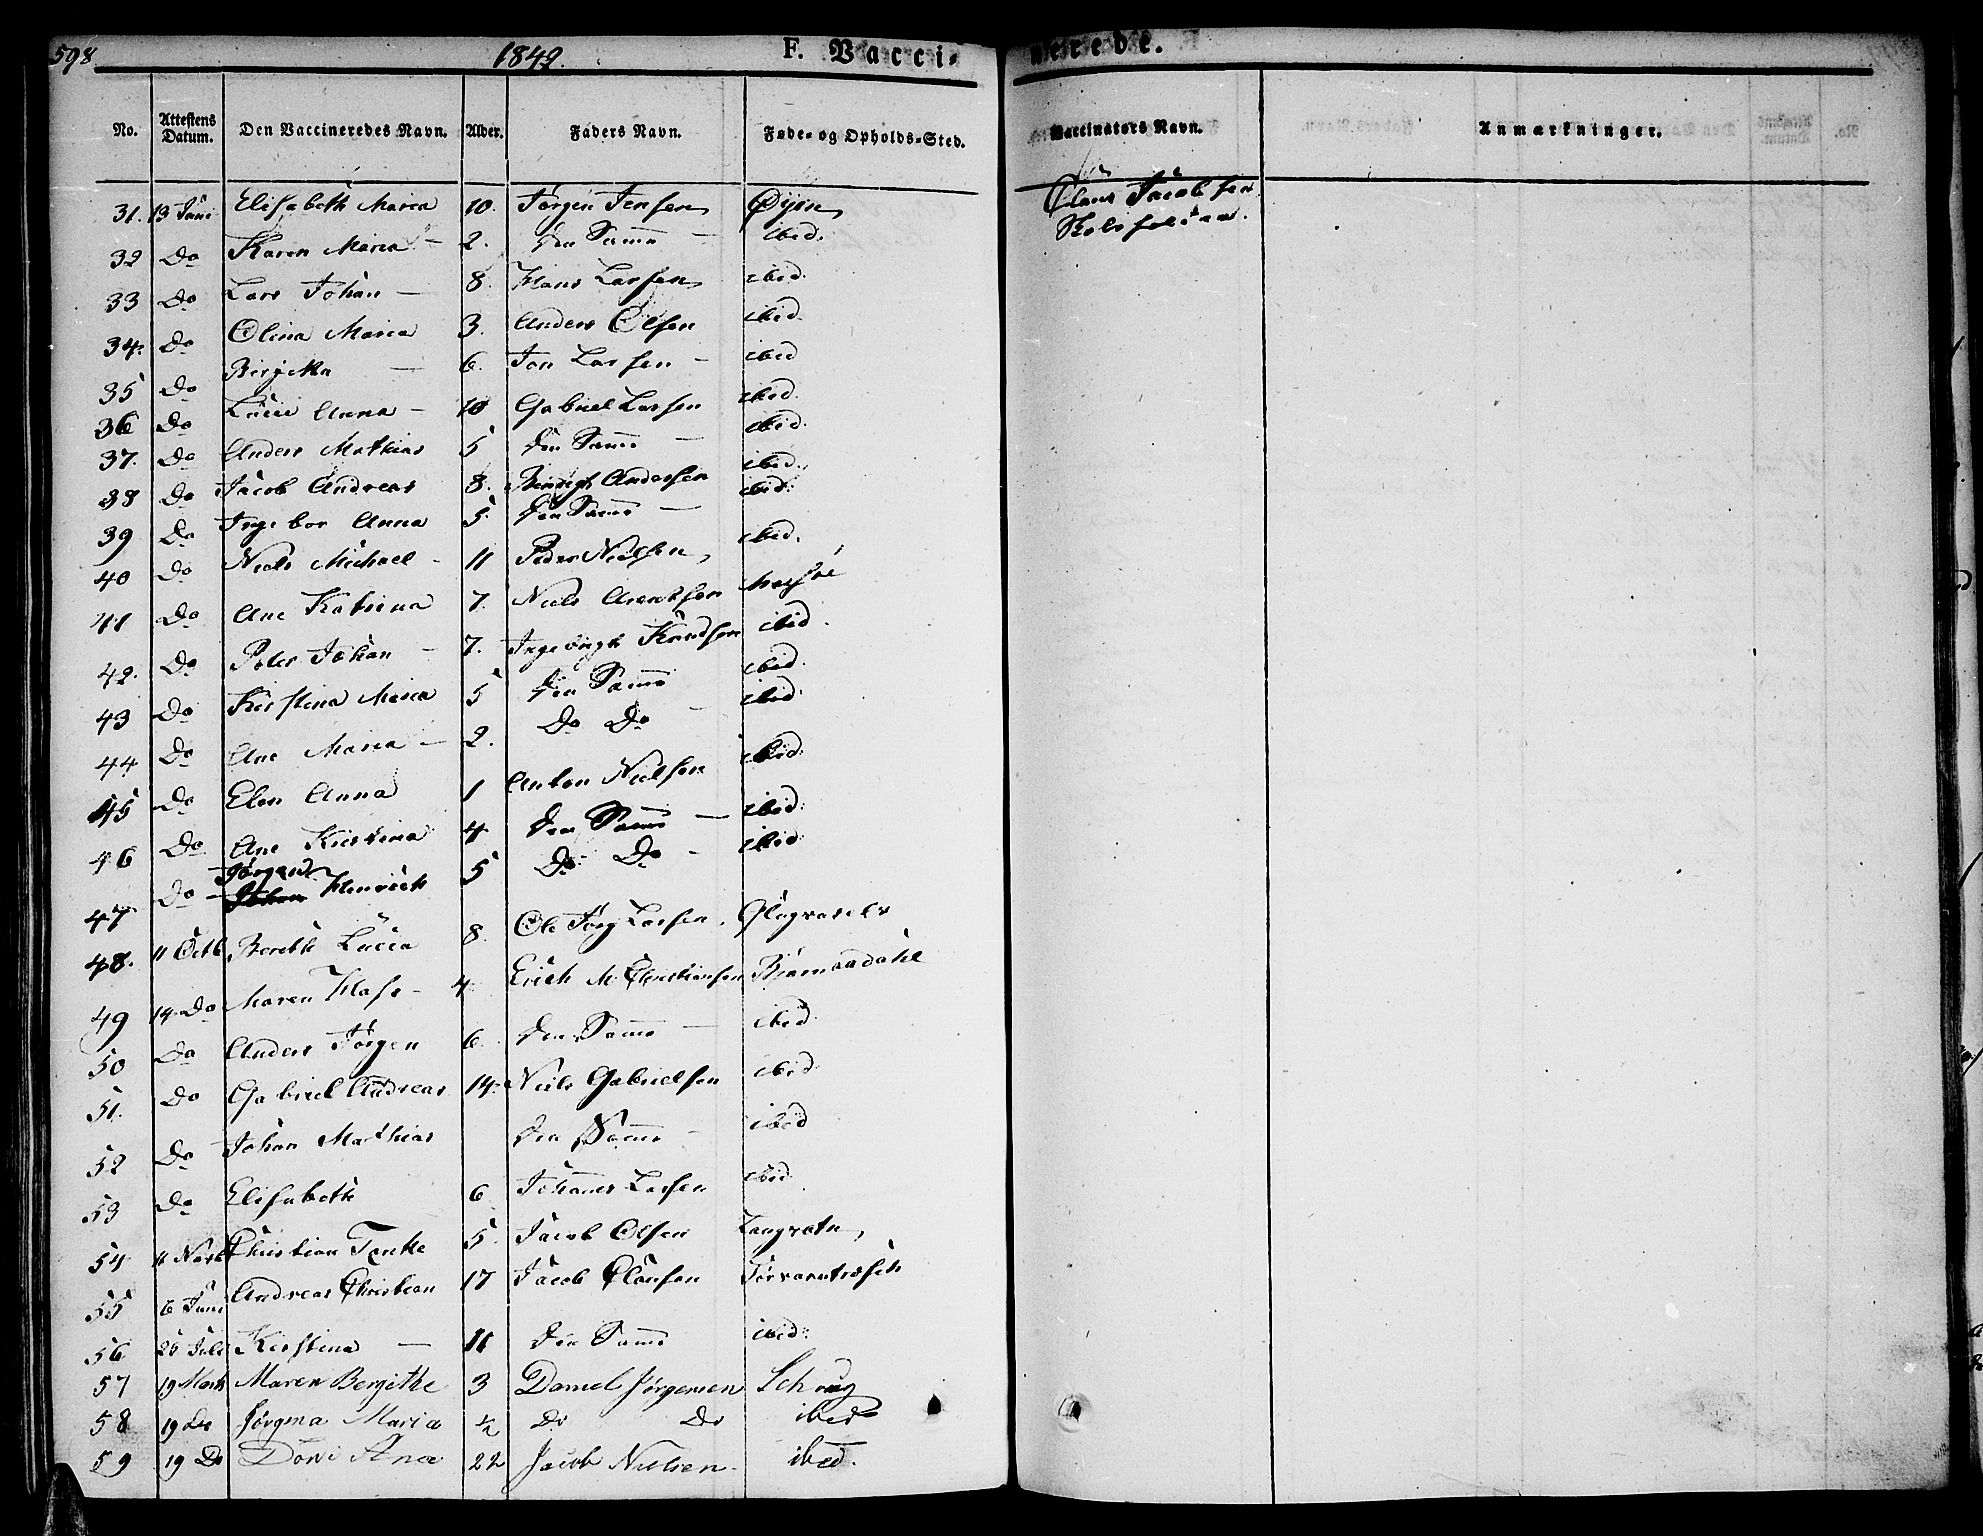 598
1842.
F. Vacci-
nerede.
No. Attestens Datum. Den Vaccineredes Navn. Alder. Faders Navn. Føde- og Opholds-Sted. Vaccinators Navn. Anmærkninger.
31. 13 Juni Elisabeth Maria 10. Jørgen Jensen Øijen Claus Jacobsen
32 Do Karen Maria - 2. Den Samme - ibid.
33 Do Lars Johan - 8. Hans Larsen ibid.
34. Do Olina Maria 3. Anders Olsen ibid.
35 Do Birgitta - 6. Jon Larsen - ibid
36 Do Lucie Anna - 10 Gabriel Larsen ibid.
37. Do Anders Mathias 5 Den Samme - ibid.
38 Do Jacob Andreas 8. Andersen ibid.
39 Do Ingebor Anna 5. Den Samme - ibid.
40 Do Niels Michael - 11 Peder Nielsen ibid.
41 Do Ane Katrina 7. Niels Arentsen
42. Do Peter Johan - 7. Ingebrigt Knudsen ibid.
43 Do Kirstina Maria 5 Den Samme ibid.
44 Do Ane Maria - 2. Do Do - ibid.
45 Do Elen Anna 1 Anton Nielsen ibid.
46 Do Ane Kirstina 4 Den Samme - ibid.
47 Do - Jørgen Johan Henrich 5 Do Do - ibid.
48. 11 Octb. Berethe Lucia 8. Ole Jørg Larsen.
49 14 Do Maren - 4. Erich M. Christiansen Bjørnaadahl
50 Do Anders Jørgen 6. Den Samme - ibid.
51. Do Gabriel Andreas 14. Niels Gabrielsen ibid.
52 Do Johan Mathias Den Samme - ibid
53 Do Elisabeth 6 Johannes Larsen ibid.
54 11 Christian Tenke 5. Jacob Olsen Langvatn
55 6 Juni Andreas Christian 17 Jacob Clausen
56 25 Juli Kirstina - 11 Den Samme ibid.
57 19 Marts Maren Bergithe 3 Daniel Jørgensen
58 19 Do Jørgina Maria ½ Do Do ibid
59 19 Do Ana 22 Jacob Nielsen ibid.